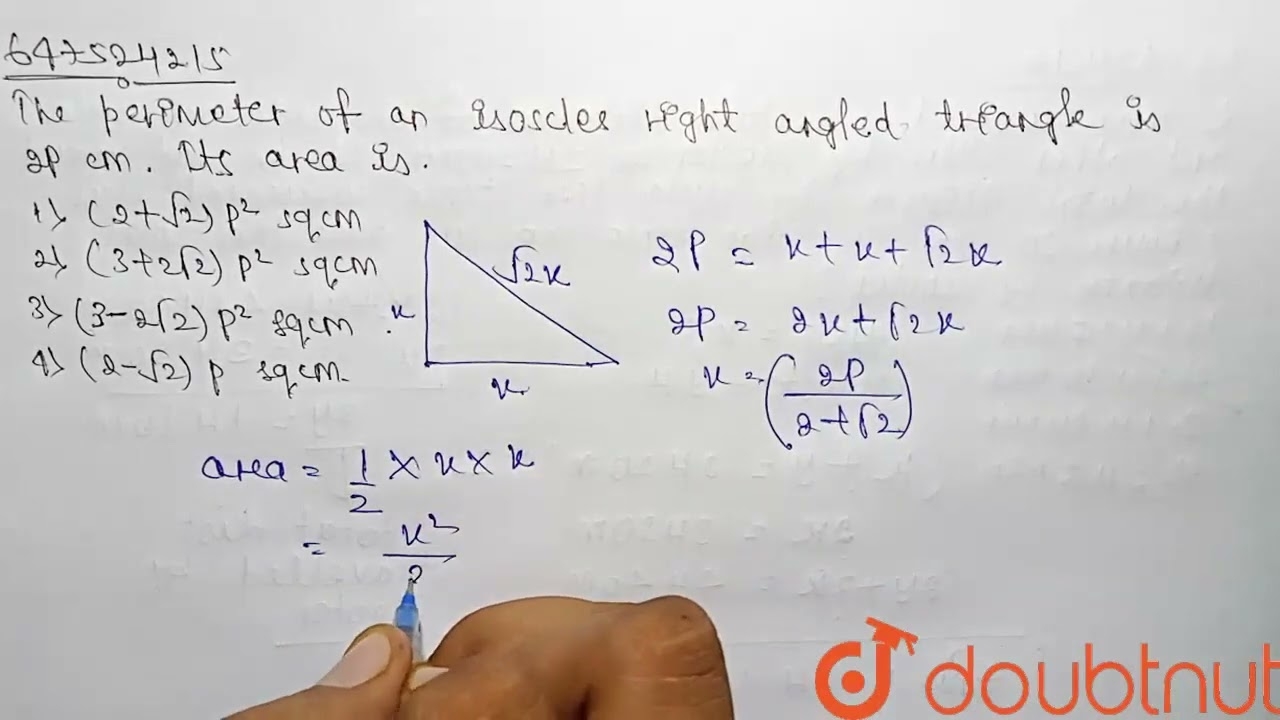 647524215
The perimeter of an isoscles right angled triangle is
2P cm. Its area is.
1) (2+√2) p² sqcm
2) (3+2√2) p² sqcm
3) (3-2√2) p² sqcm.
4) (2-√2) p sqcm.
√2x
x
x
2P = x + x + √2x
2P = 2x + √2x
x = (2P/(2+√2))
area = 1/2 × x × x
= x²/2
doubtnut